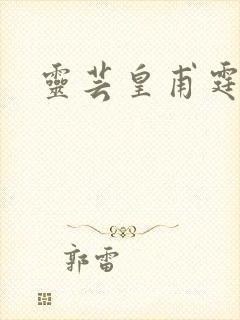 靈芸皇甫霆
郭雷